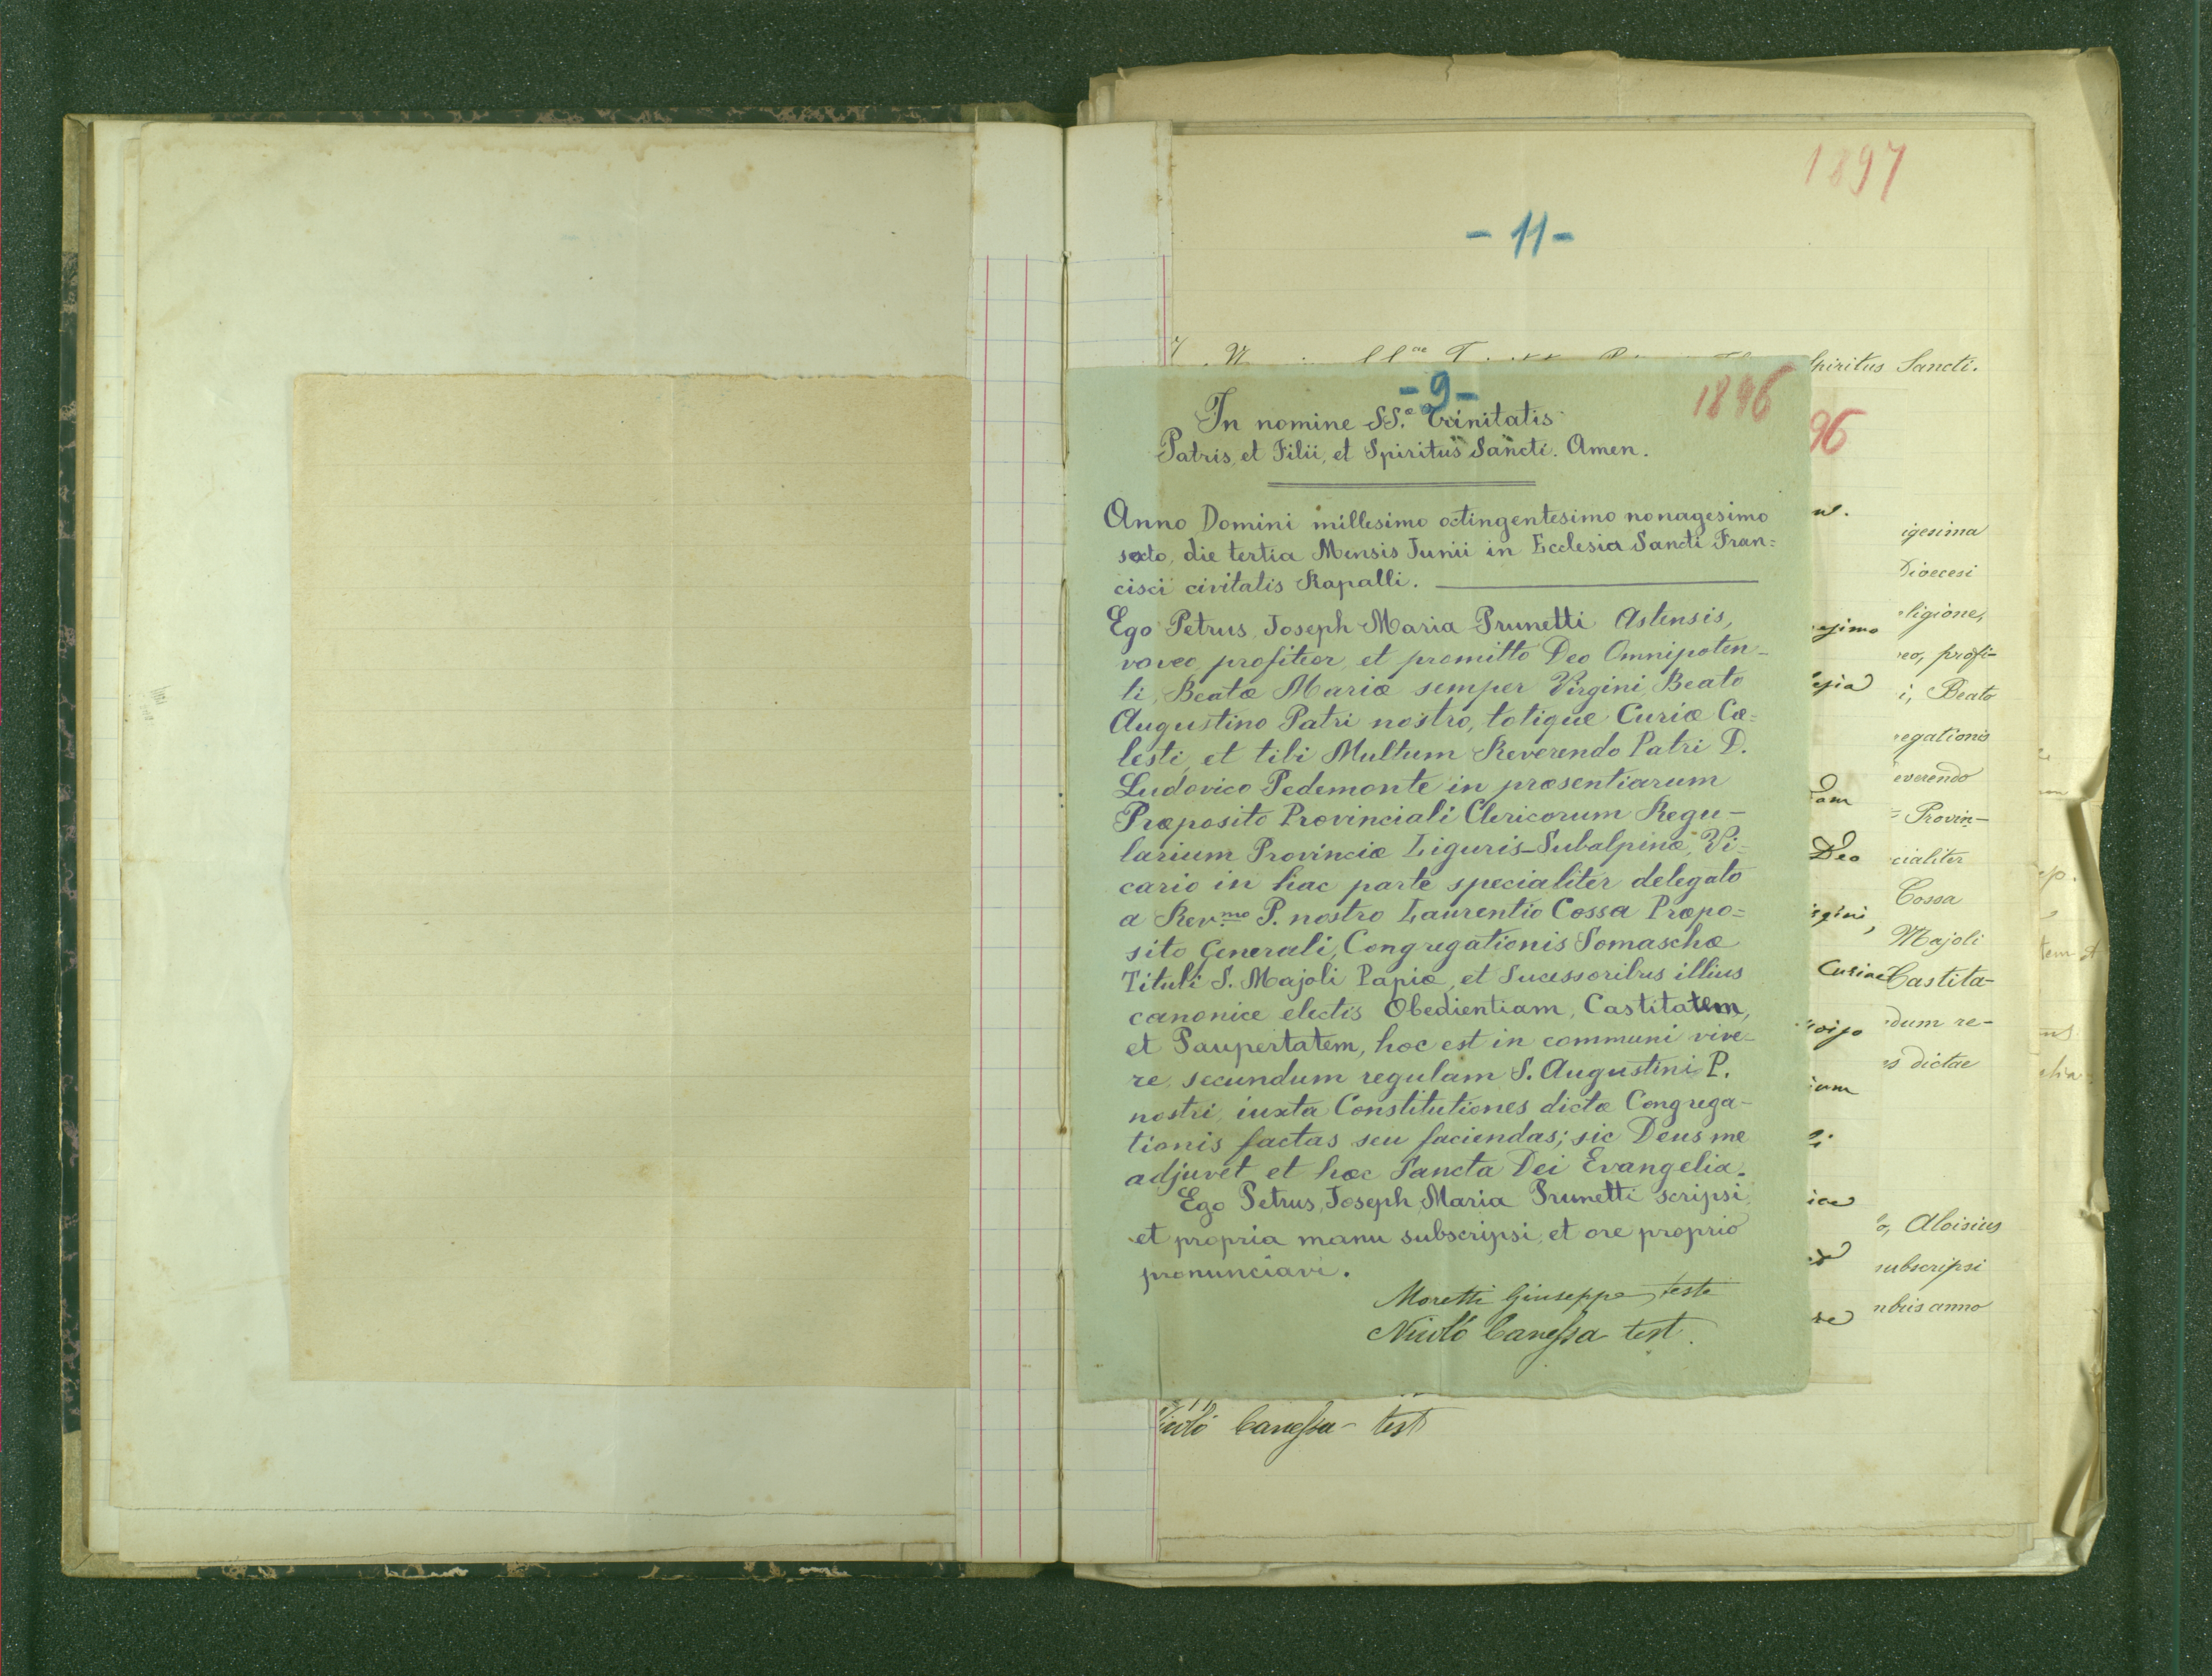 1897
- 11 -
Spiritus Sancti.
- 9 -
1896
In nomine SS.ᵉ Trinitatis
Patris, et Filii, et Spiritus Sancti. Amen.
Anno Domini millesimo octingentesimo nonagesimo
sexto, die tertia Mensis Junii in Ecclesia Sancti Fran=
cisci civitatis Rapalli.
Ego Petrus, Joseph Maria Prunetti Astensis,
voveo, profiteor, et promitto Deo Omnipoten-
ti, Beatæ Mariæ semper Virgini, Beato
Augustino Patri nostro, totique Curiæ Cæ=
lesti, et tibi Multum Reverendo Patri D.
Ludovico Pedemonte in præsentiarum
Præposito Provinciali Clericorum Regu-
larium Provinciæ Liguris-Subalpinæ, Vi=
cario in hac parte specialiter delegato
a Rev.mo P. nostro Laurentio Cossa Præpo=
sito Generali, Congregationis Somaschæ
Tituli S. Majoli Papiæ, et Sucessoribus illius
canonice electis Obedientiam, Castitatem,
et Paupertatem, hoc est in communi vive-
re, secundum regulam S. Augustini P.
nostri, iuxta Constitutiones dictæ Congrega-
tionis factas seu faciendas; sic Deus me
adjuvet et hæc Sancta Dei Evangelia.
Ego Petrus, Joseph, Maria Prunetti scripsi,
et propria manu subscripsi, et ore proprio
pronunciavi.
Moretti Giuseppe, teste
Nicolò Canessa test.
96
igesima
Dioecesi
eligione,
eo, profi-
i, Beato
egationis
everendo
= Provin-
Deo
cialiter
Cossa
Majoli
Curiae
Castita-
dum re-
s dictae
o, Aloisius
subscripsi
mbris anno
Nicolò Canessa - test